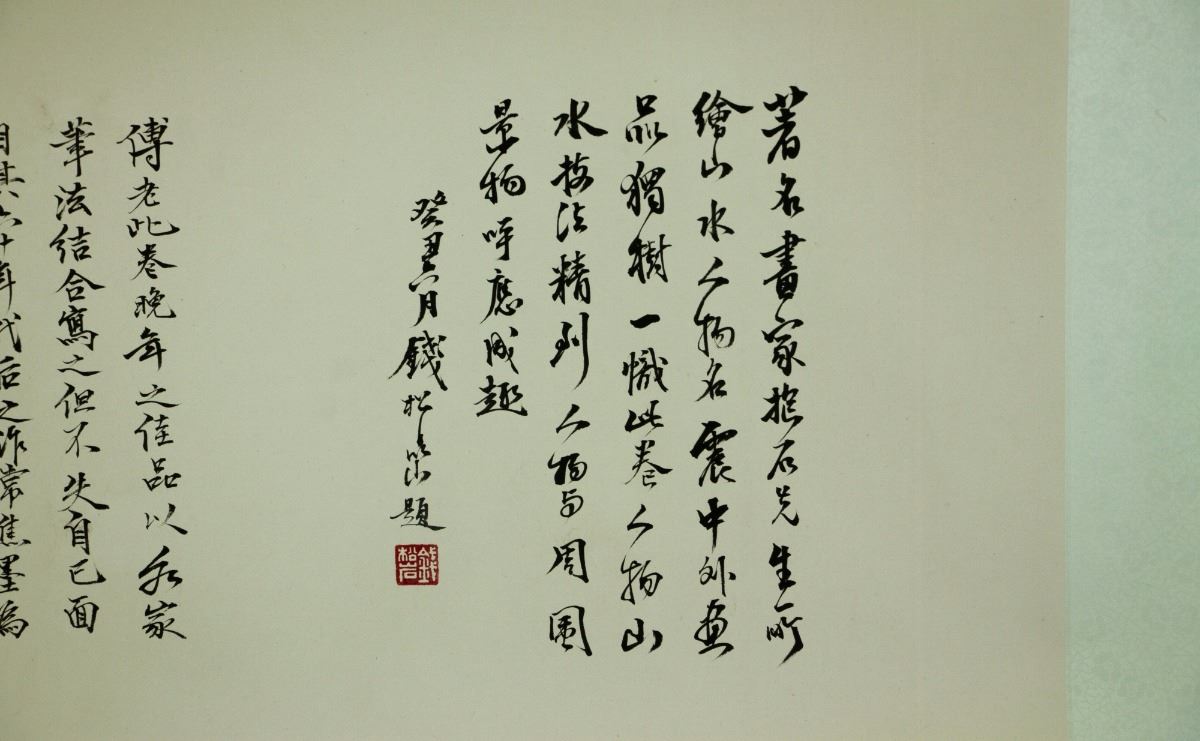 著名畫家抱石先生所
繪山水人物名震中外画
品獨樹一幟此卷人物山
水技法精到人物与周圍
景物呼應成趣
癸丑六月錢松嵒題
錢松嵒
傅老此卷晚年之佳品以各家
筆法結合寫之但不失自己面
目其六十年代后之作常焦墨為